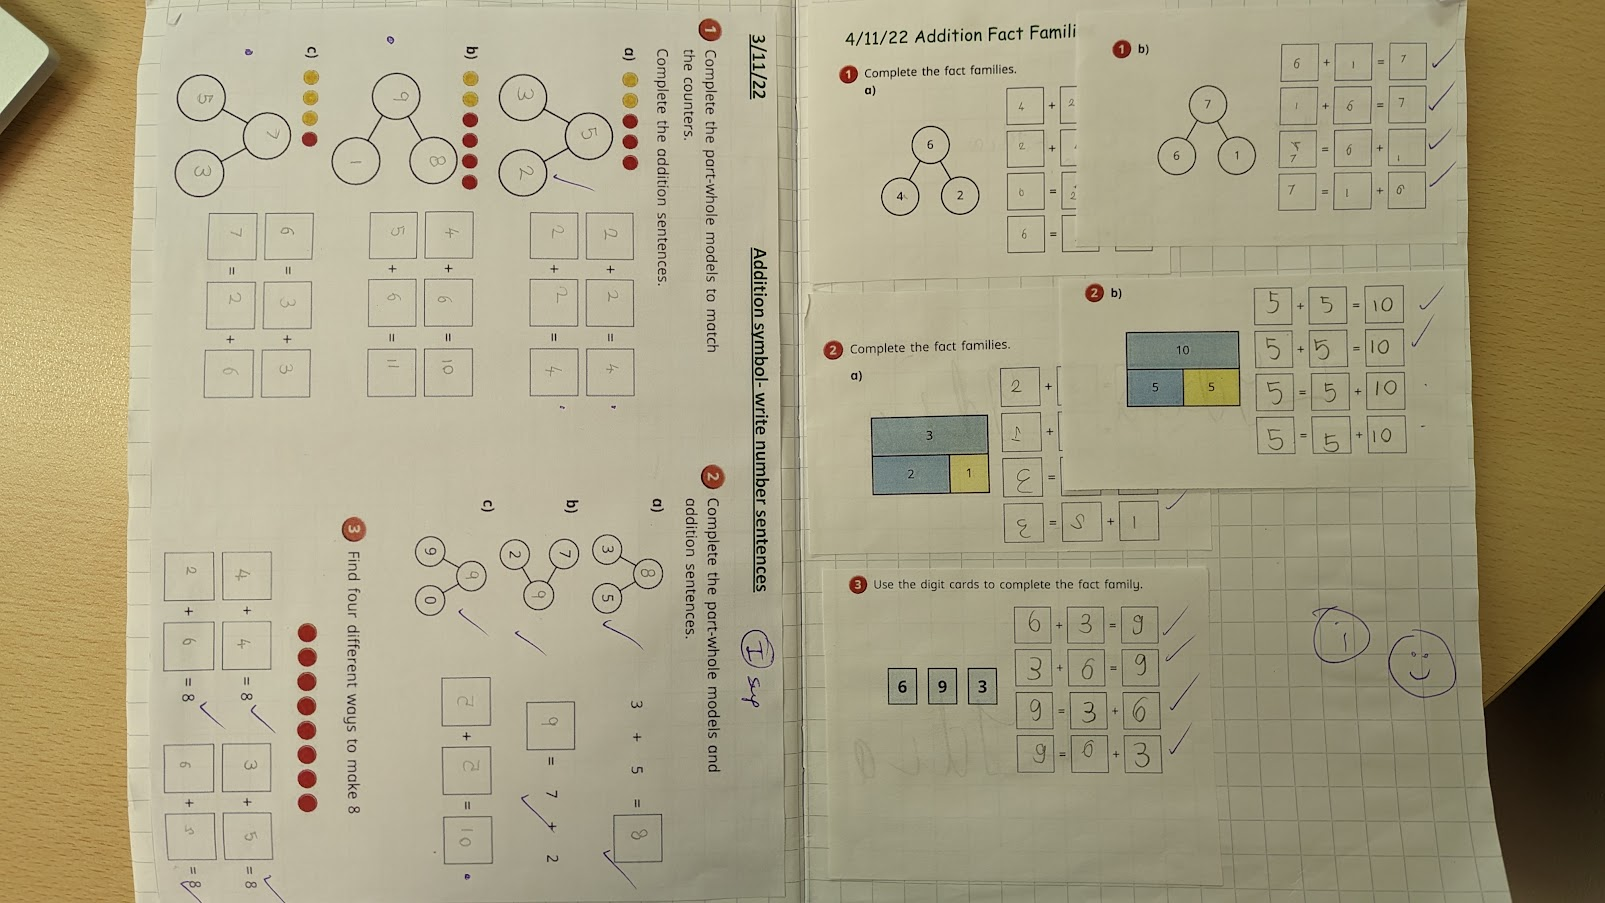 3/11/22 Addition symbol- write number sentences
I sup
1 Complete the part-whole models to match
the counters.
Complete the addition sentences.
a)
3 5 2
2 + 2 = 4
2 + 2 = 4
b)
9 1 8
4 + 6 = 10
5 + 6 = 11
c)
5 7 3
6 = 3 + 3
7 = 2 + 6
2 Complete the part-whole models and
addition sentences.
a)
3 8 5
3 + 5 = 8
b)
7 2 9
9 = 7 + 2
c)
9 9 0
= 10
3 Find four different ways to make 8
4 + 4 = 8
2 + 6 = 8
3 + 5 = 8
6 + = 8
4/11/22 Addition Fact Famili
1 Complete the fact families.
a)
6
4 2
4 + 2
2 +
= 2
6 =
1 b)
7
6 1
6 + 1 = 7
1 + 6 = 7
7 = 6 + 1
7 = 1 + 6
2 Complete the fact families.
a)
3
2 1
2 +
1 +
3 =
3 = 2 + 1
2 b)
10
5 5
5 + 5 = 10
5 + 5 = 10
5 = 5 + 10
5 = 5 + 10
3 Use the digit cards to complete the fact family.
6 9 3
6 + 3 = 9
3 + 6 = 9
9 = 3 + 6
9 = 6 + 3